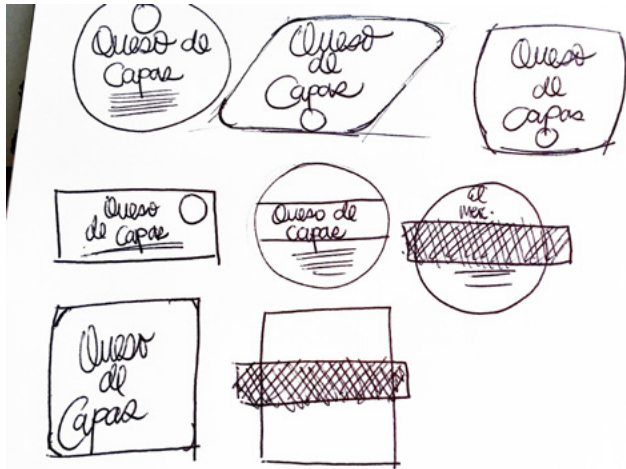 Queso de
Capas
Queso
de
Capas
Queso
de
Capas
Queso
de Capas
Queso de
Capas
el
mer.
Queso
de
Capas